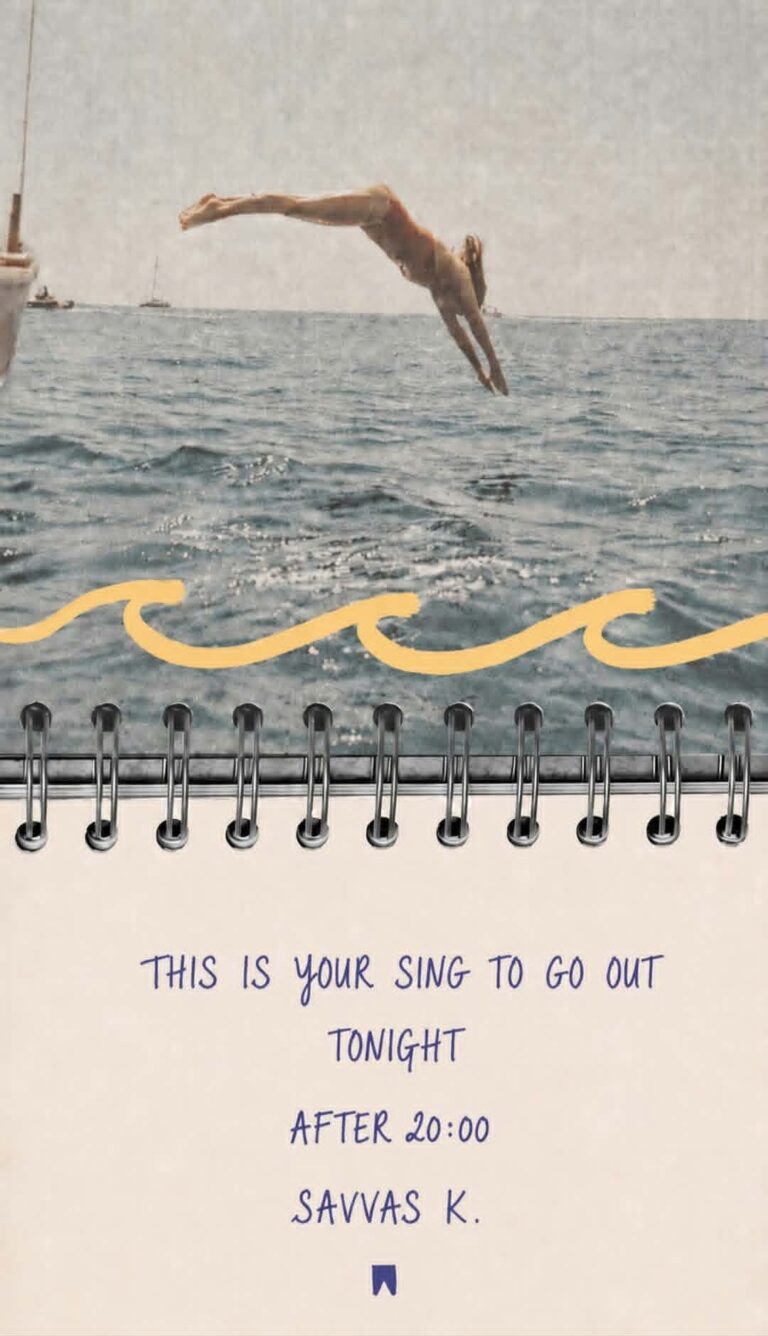 THIS IS YOUR SING TO GO OUT
TONIGHT
AFTER 20:00
SAVVAS K.